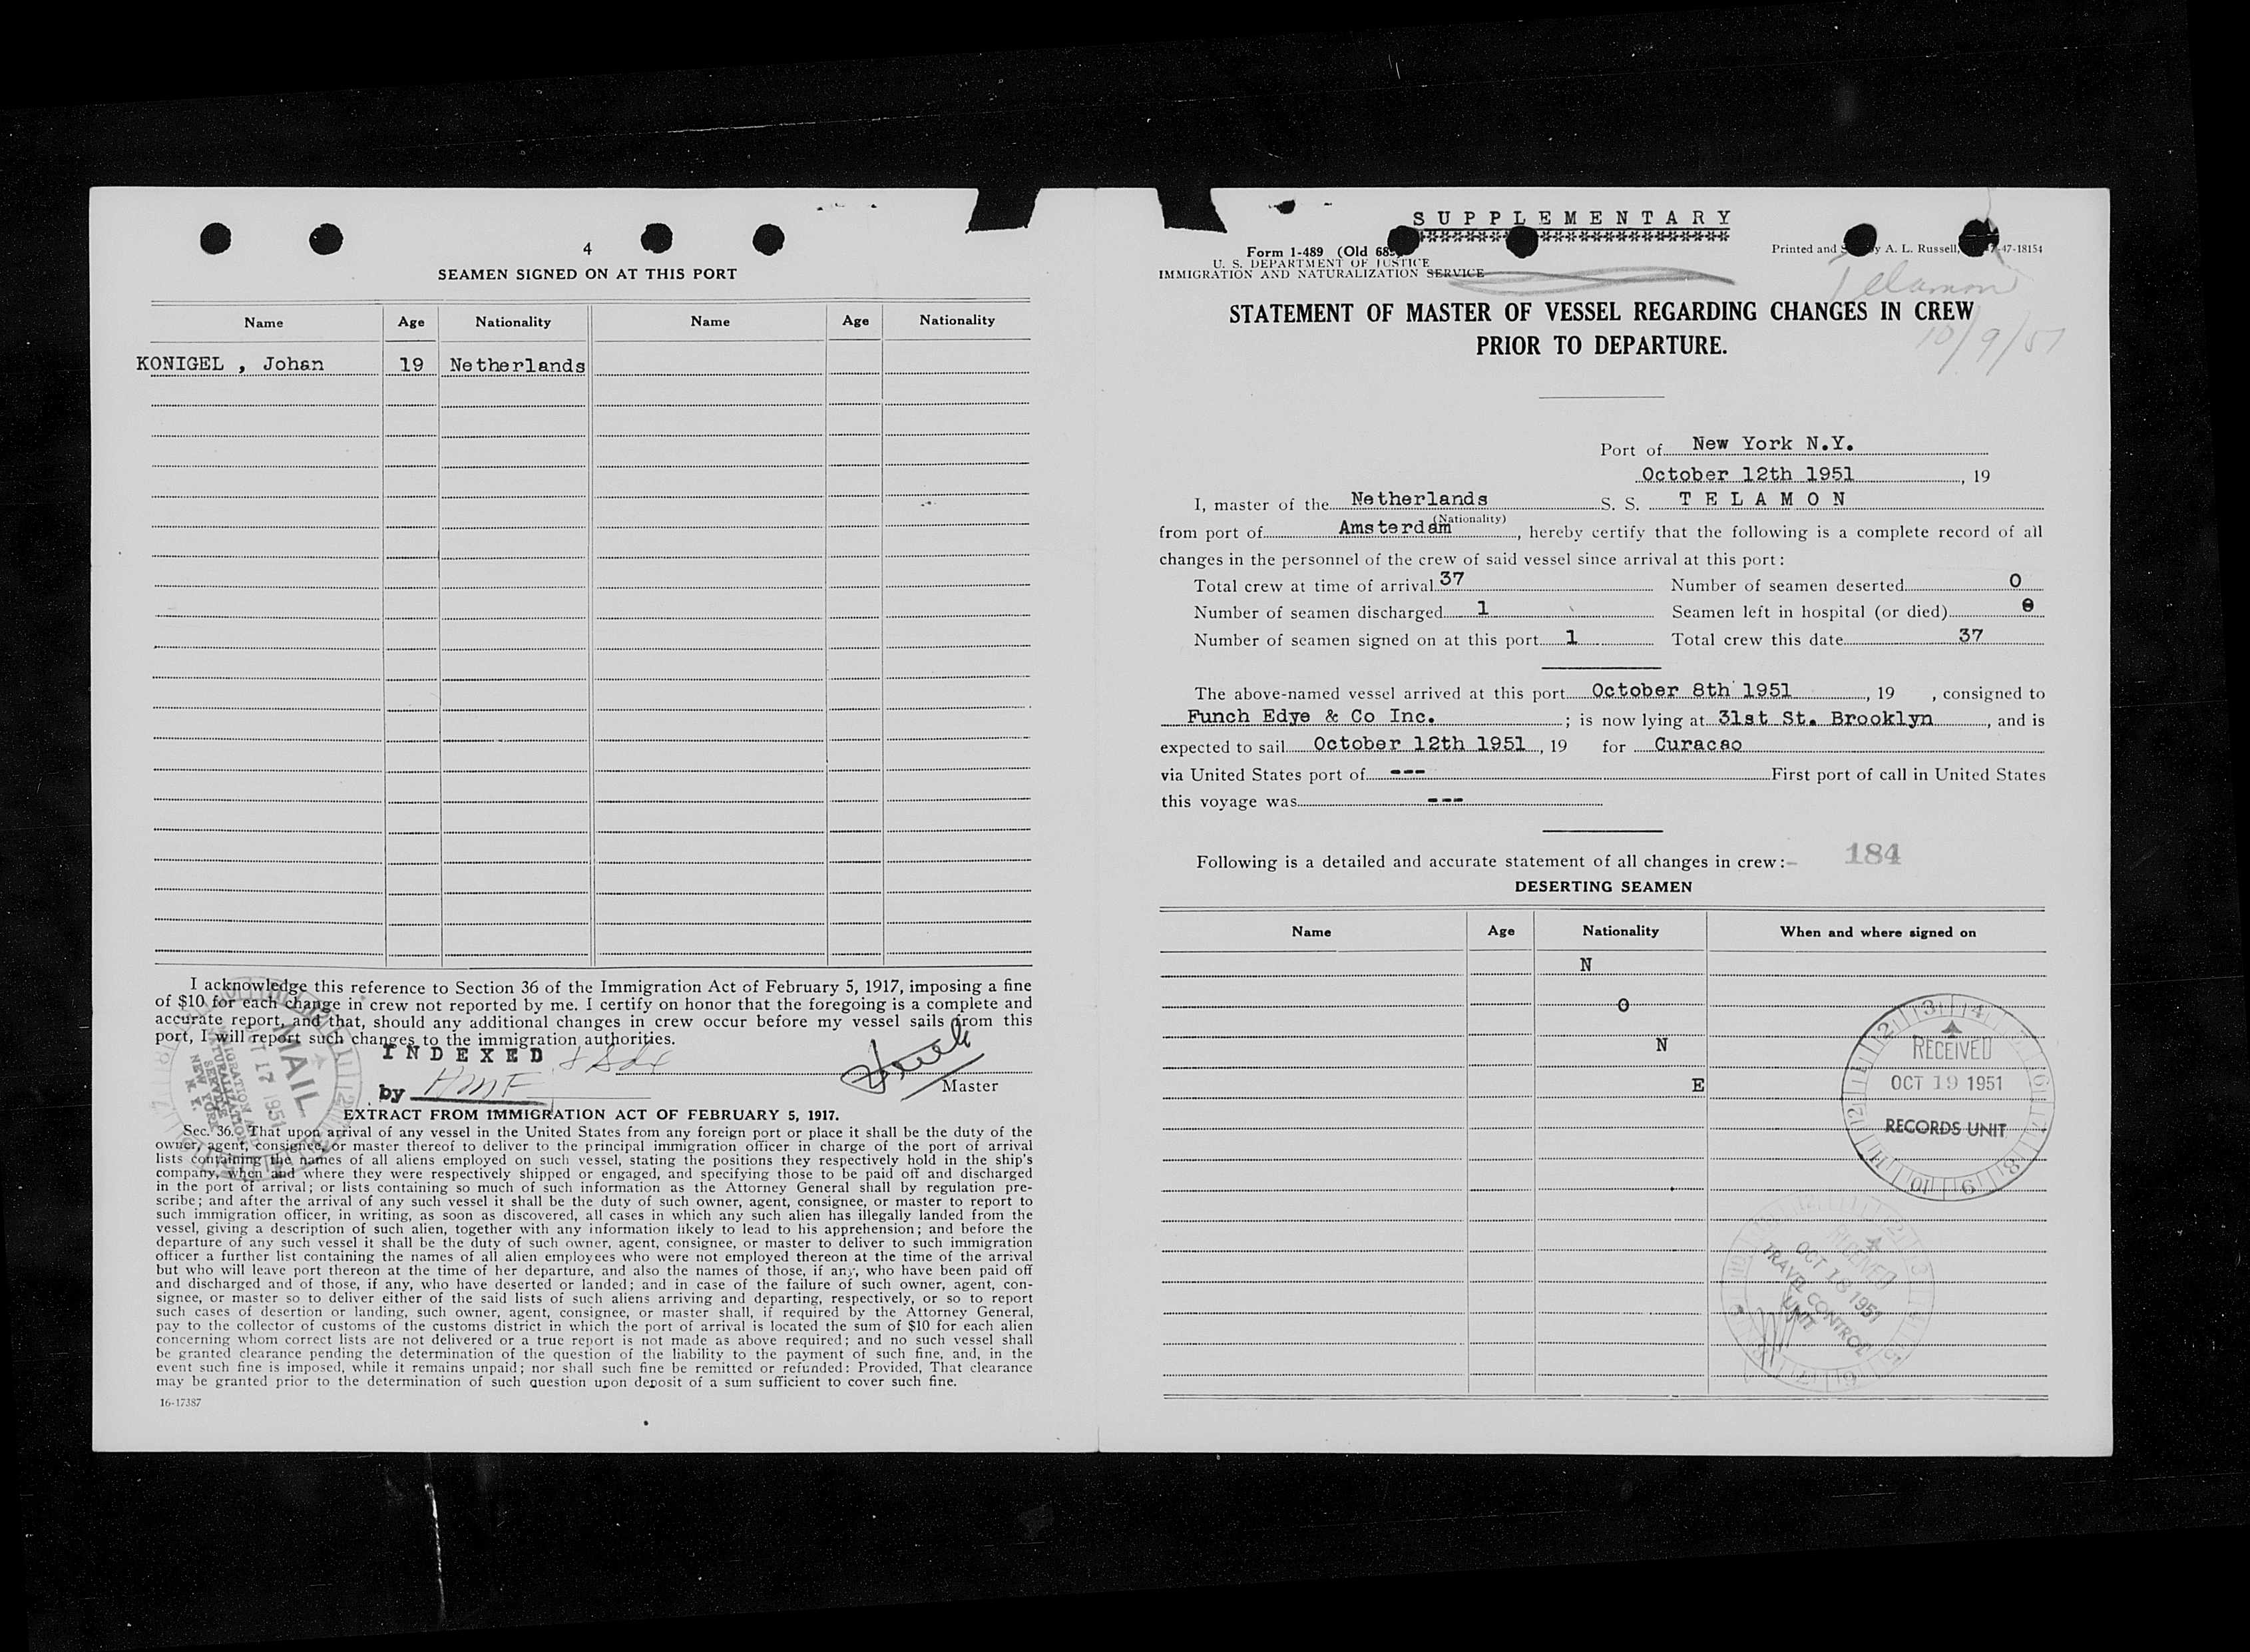 4
SEAMEN SIGNED ON AT THIS PORT
Name Age Nationality Name Age Nationality
KONIGEL , Johan 19 Netherlands
I acknowledge this reference to Section 36 of the Immigration Act of February 5, 1917, imposing a fine
of $10 for each change in crew not reported by me. I certify on honor that the foregoing is a complete and
accurate report, and that, should any additional changes in crew occur before my vessel sails from this
port, I will report such changes to the immigration authorities.
INDEXED
by HMF
Master
MAIL
OCT 17 1951
IMMIGRATION AND
NATURALIZATION
SERVICE
NEW YORK
N. Y.
EXTRACT FROM IMMIGRATION ACT OF FEBRUARY 5, 1917.
Sec. 36. That upon arrival of any vessel in the United States from any foreign port or place it shall be the duty of the
owner, agent, consignee, or master thereof to deliver to the principal immigration officer in charge of the port of arrival
lists containing the names of all aliens employed on such vessel, stating the positions they respectively hold in the ship's
company, when and where they were respectively shipped or engaged, and specifying those to be paid off and discharged
in the port of arrival; or lists containing so much of such information as the Attorney General shall by regulation pre-
scribe; and after the arrival of any such vessel it shall be the duty of such owner, agent, consignee, or master to report to
such immigration officer, in writing, as soon as discovered, all cases in which any such alien has illegally landed from the
vessel, giving a description of such alien, together with any information likely to lead to his apprehension; and before the
departure of any such vessel it shall be the duty of such owner, agent, consignee, or master to deliver to such immigration
officer a further list containing the names of all alien employees who were not employed thereon at the time of the arrival
but who will leave port thereon at the time of her departure, and also the names of those, if any, who have been paid off
and discharged and of those, if any, who have deserted or landed; and in case of the failure of such owner, agent, con-
signee, or master so to deliver either of the said lists of such aliens arriving and departing, respectively, or so to report
such cases of desertion or landing, such owner, agent, consignee, or master shall, if required by the Attorney General,
pay to the collector of customs of the customs district in which the port of arrival is located the sum of $10 for each alien
concerning whom correct lists are not delivered or a true report is not made as above required; and no such vessel shall
be granted clearance pending the determination of the question of the liability to the payment of such fine, and, in the
event such fine is imposed, while it remains unpaid; nor shall such fine be remitted or refunded: Provided, That clearance
may be granted prior to the determination of such question upon deposit of a sum sufficient to cover such fine.
16-17387
SUPPLEMENTARY
Form 1-489 (Old 689
U. S. DEPARTMENT OF JUSTICE
IMMIGRATION AND NATURALIZATION SERVICE
Printed and by A. L. Russell, 47-18154
Telamon
10/9/51
STATEMENT OF MASTER OF VESSEL REGARDING CHANGES IN CREW
PRIOR TO DEPARTURE.
Port of New York N.Y.
October 12th 1951, 19
I, master of the Netherlands S. S. TELAMON
(Nationality)
from port of Amsterdam, hereby certify that the following is a complete record of all
changes in the personnel of the crew of said vessel since arrival at this port:
Total crew at time of arrival 37 Number of seamen deserted 0
Number of seamen discharged 1 Seamen left in hospital (or died) 0
Number of seamen signed on at this port 1 Total crew this date 37
The above-named vessel arrived at this port October 8th 1951, 19 , consigned to
Funch Edye & Co Inc. ; is now lying at 31st St. Brooklyn, and is
expected to sail October 12th 1951, 19 for Curacao
via United States port of --- First port of call in United States
this voyage was ---
Following is a detailed and accurate statement of all changes in crew:- 184
DESERTING SEAMEN
Name Age Nationality When and where signed on
N
O
N
E
RECEIVED
OCT 19 1951
RECORDS UNIT
RECEIVED
OCT 18 1951
TRAVEL CONTROL
UNIT